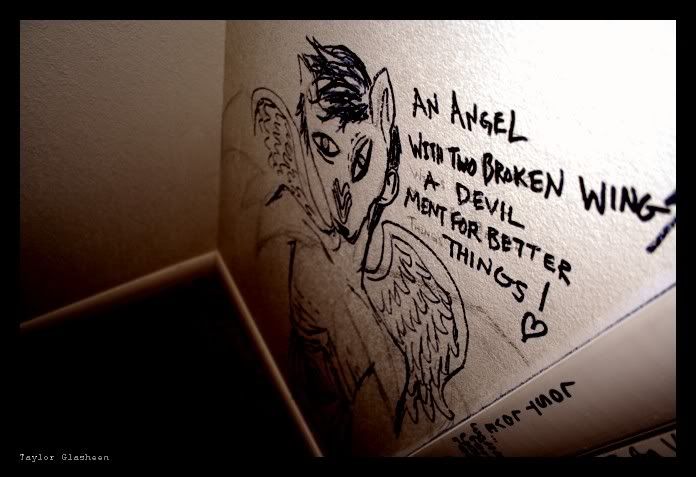 AN ANGEL
WITH TWO BROKEN WINGS
A DEVIL
MENT FOR BETTER
THINGS!
Taylor Glasheen